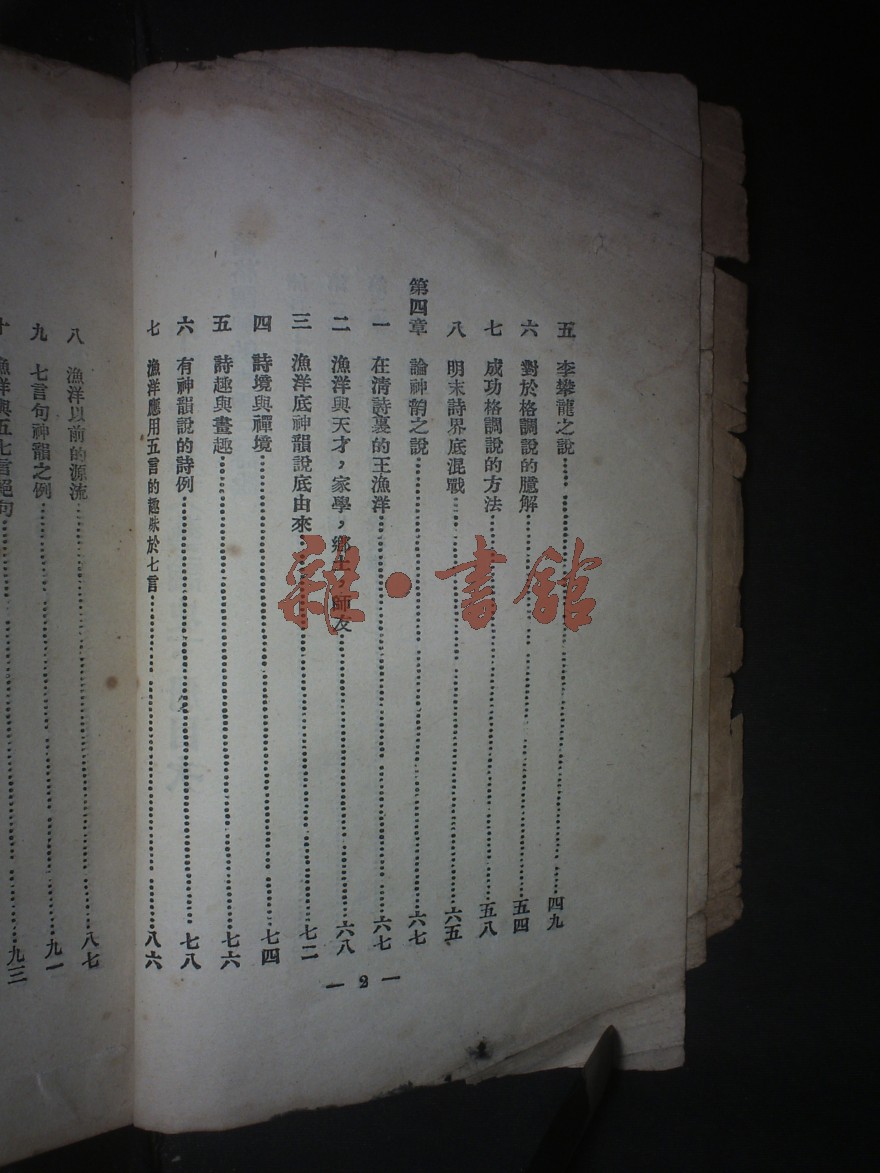 五 李攀龍之說……四九
六 對於格調說的臆解……五四
七 成功格調說的方法……五八
八 明末詩界底混戰……六五
第四章 論神韵之說……六七
一 在清詩裏的王漁洋……六七
二 漁洋與天才，家學，鄉土，師友……六八
三 漁洋底神韻說底由來……七二
四 詩境與禪境……七四
五 詩趣與畫趣……七六
六 有神韻說的詩例……七八
七 漁洋應用五言的趣味於七言……八六
— 2 —
八 漁洋以前的源流……八七
九 七言句神韻之例……九一
十 漁洋與五七言絕句……九三
雜·書館